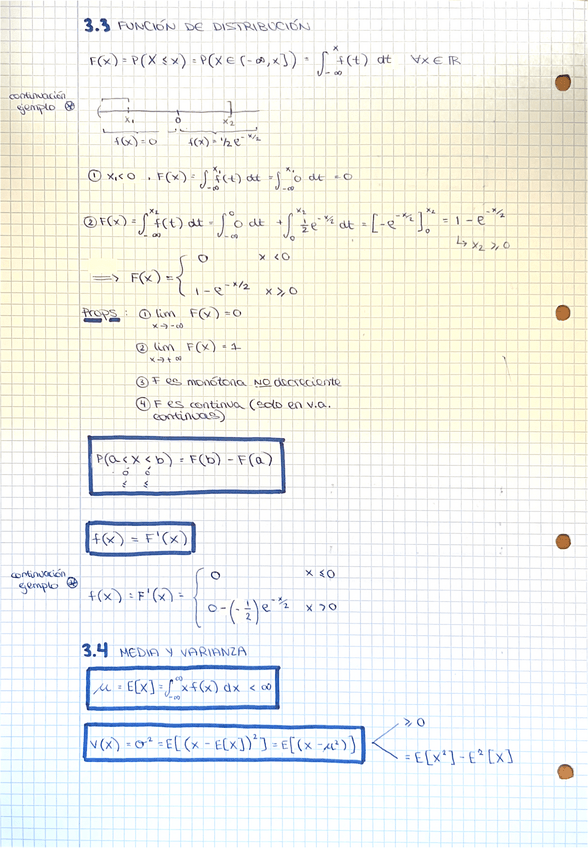 3.3 FUNCIÓN DE DISTRIBUCIÓN
F(x) = P(X ≤ x) = P(X ∈ (-∞, x]) = ∫_{-∞}^{x} f(t) dt ∀x ∈ ℝ
continuación
ejemplo ⊛
x₁ 0 x₂
f(x) = 0 f(x) = 1/2 e^{-x/2}
① x₁ < 0 . F(x) = ∫_{-∞}^{x₁} f(t) dt = ∫_{-∞}^{x₁} 0 dt = 0
② F(x) = ∫_{-∞}^{x₂} f(t) dt = ∫_{-∞}^{0} 0 dt + ∫_{0}^{x₂} 1/2 e^{-x/2} dt = [-e^{-x/2}]_{0}^{x₂} = 1 - e^{-x/2}
↳ x₂ ≥ 0
⟹ F(x) = { 0 x < 0
1 - e^{-x/2} x ≥ 0
Props : ① lim F(x) = 0
x → -∞
② lim F(x) = 1
x → +∞
③ F es monótona NO decreciente
④ F es continua (solo en v.a.
continuas)
P(a < X < b) = F(b) - F(a)
ó ó
≤ ≤
f(x) = F'(x)
continuación
ejemplo ⊛
f(x) = F'(x) = { 0 x ≤ 0
0 - (-1/2) e^{-x/2} x > 0
3.4 MEDIA Y VARIANZA
μ = E[X] = ∫_{-∞}^{∞} x f(x) dx < ∞
V(x) = σ² = E[(x - E[x])²] = E[(x - μ²)]
≥ 0
= E[X²] - E²[X]